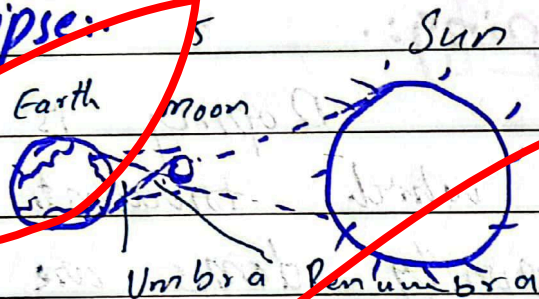 ipse:
s Sun
Earth Moon
Umbra Penumbra